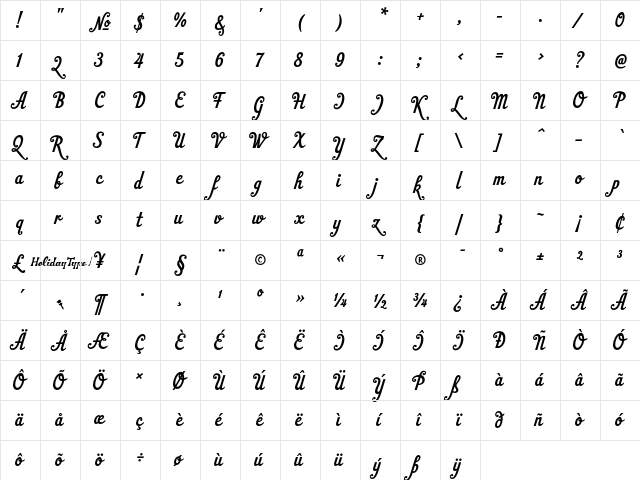 ! " № $ % & ' ( ) * + , - . / 0
1 2 3 4 5 6 7 8 9 : ; < = > ? @
A B C D E F G H I J K L M N O P
Q R S T U V W X Y Z [ \ ] ^ _
a b c d e f g h i j k l m n o p
q r s t u v w x y z { | } ~ ¡ ¢
£ HolidayType! ¥ ¦ § ¨ © ª « ¬ ® ¯ ° ± ²
´ ¶ · ¸ ¹ º » ¼ ½ ¾ ¿ À Á Â Ã
Ä Å Æ Ç È É Ê Ë Ì Í Î Ï Ð Ñ Ò Ó
Ô Õ Ö × Ø Ù Ú Û Ü Ý Þ ß à á â ã
ä å æ ç è é ê ë ì í î ï ð ñ ò ó
ô õ ö ÷ ø ù ú û ü ý þ ÿ